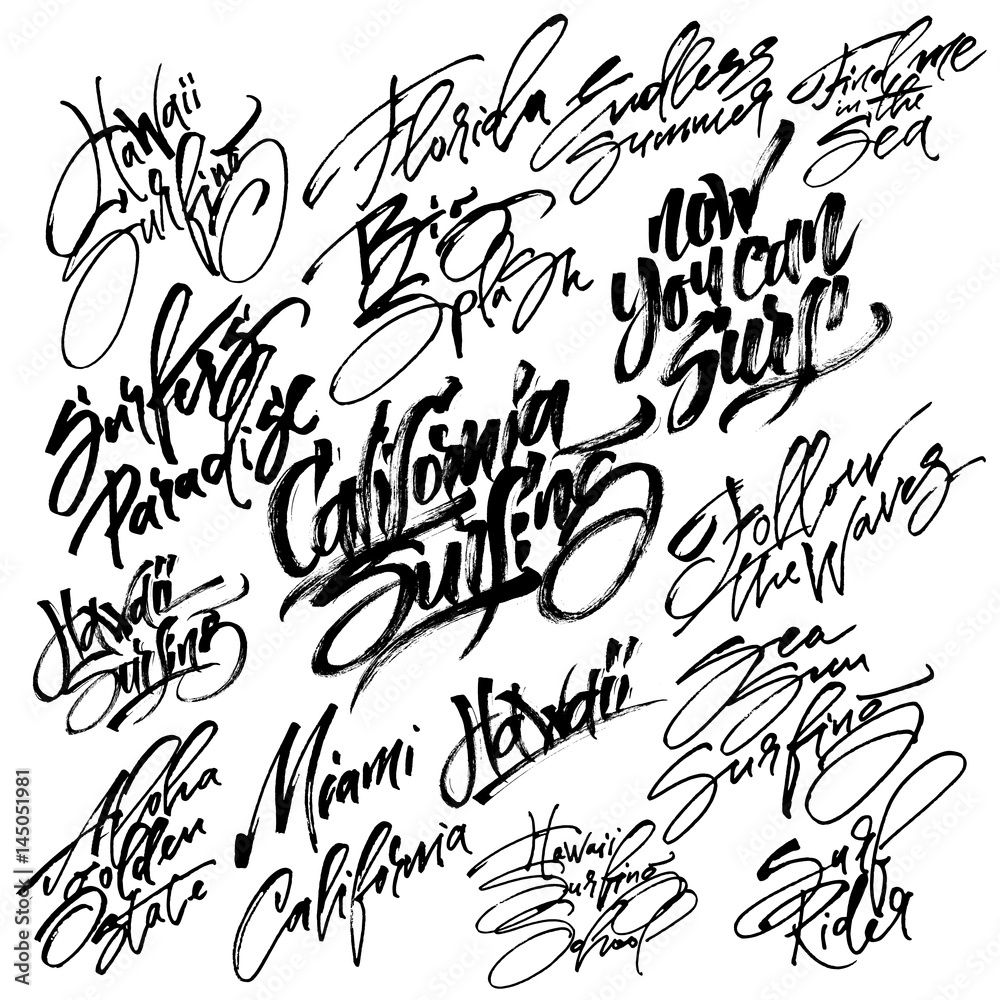 Hawaii
Surfing
Florida
Endless
Summer
Find me
in the
Sea
Big
Splash
now
you can
surf
Surfers
Paradise
California
Surfing
Follow
the Waves
Hawaii
Surfing
Sea
Sun
Surfing
Hawaii
Miami
Aloha
golden
state
California
Hawaii
Surfing
School
Surf
Rider
Adobe Stock | #145051981